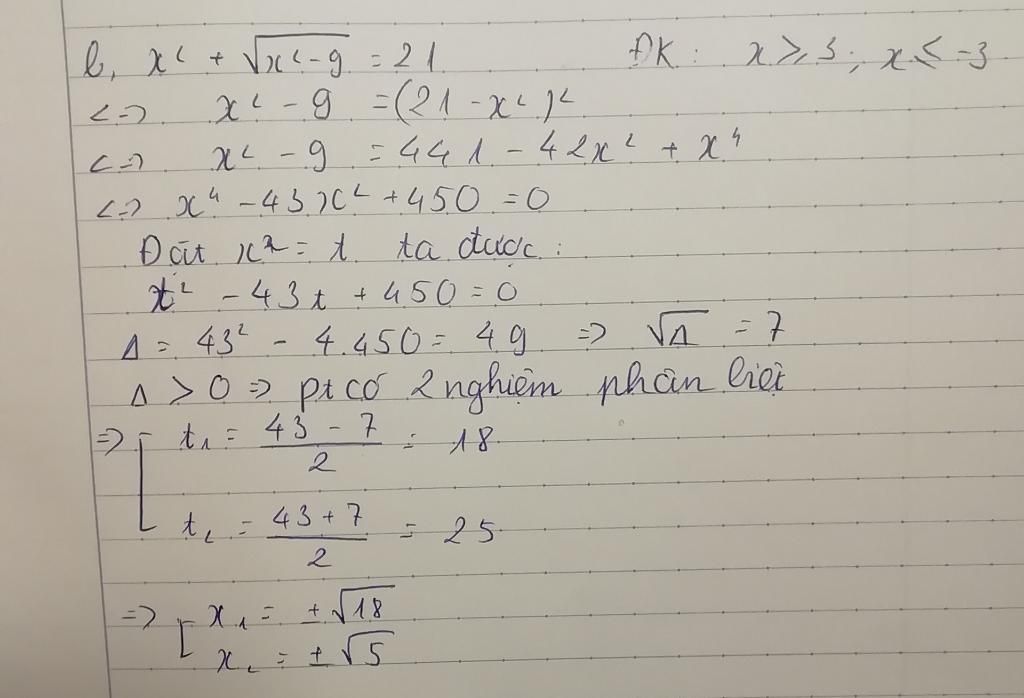 b, x² + √(x²-9) = 21 ĐK: x ≥ 3; x ≤ -3
<=> x² - 9 = (21 - x²)²
<=> x² - 9 = 441 - 42x² + x⁴
<=> x⁴ - 43x² + 450 = 0
Đặt x² = t ta được:
t² - 43t + 450 = 0
Δ = 43² - 4.450 = 49 => √Δ = 7
Δ > 0 => pt có 2 nghiệm phân biệt
=> [ t₁ = (43 - 7)/2 = 18
t₂ = (43 + 7)/2 = 25
=> [ x₁ = ±√18
x₂ = ±√5